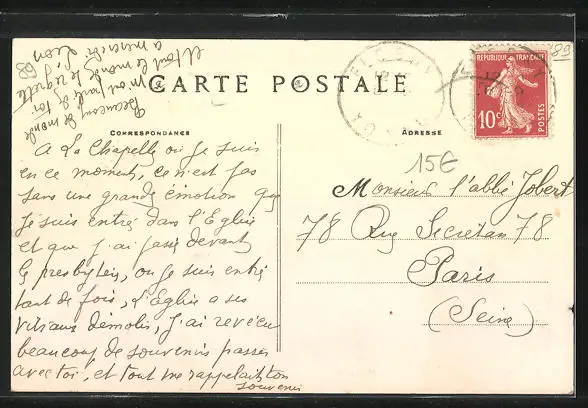 CARTE POSTALE
CORRESPONDANCE
ADRESSE
REPUBLIQUE FRANÇAISE
10c
POSTES
89
15€
A La Chapelle où je suis
en ce moment, ce n'est pas
sans une grande émotion que
je suis entré dans l'Eglise
et que j'ai passé devant
le presbytère, où je suis entré
tant de fois, L'Eglise a ses
vitraux démolis, j'ai revécu
beaucoup de souvenirs passés
avec toi, et tout me rappelait ton
souvenir
Beaucoup de monde
m'ont parlé de toi
et tout le monde te regrette
a mercredi Léon
Monsieur l'abbé Jobert
78 Rue Secrétan 78
Paris
(Seine)